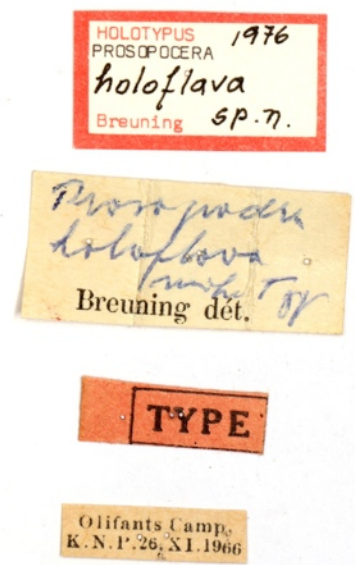 HOLOTYPUS 1976
PROSOPOCERA
holoflava
Breuning sp.n.
holoflava
mihi Typ
Breuning dét.
TYPE
Olifants Camp,
K.N.P. 26.XI.1966